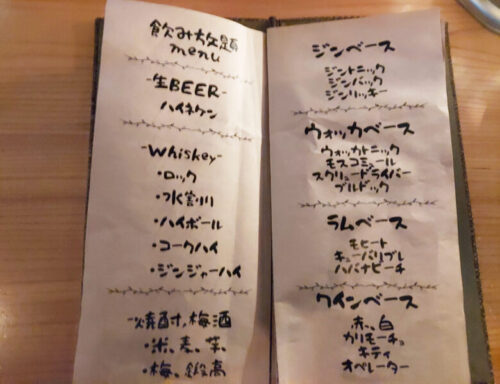 飲み放題
menu
-生BEER-
ハイネケン
-Whiskey-
・ロック
・水割り
・ハイボール
・コークハイ
・ジンジャーハイ
焼酎,梅酒
・米、麦、芋、
・梅、鍛高
ジンベース
ジントニック
ジンバック
ジンリッキー
ウォッカベース
ウォッカトニック
モスコミュール
スクリュードライバー
ブルドック
ラムベース
モヒート
キューバリブレ
ハバナピーチ
ワインベース
赤、白
カリモーチョ
キティ
オペレーター